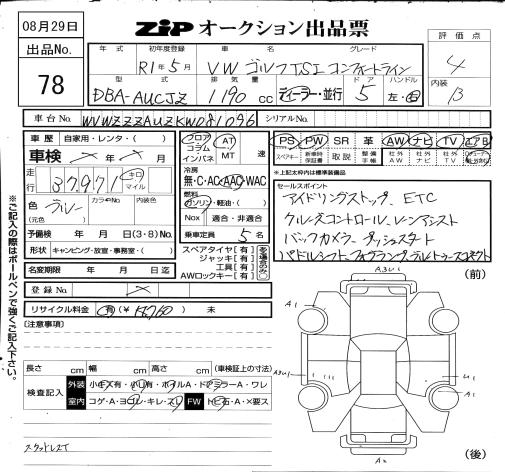 08月29日
ZIP オークション出品票
評価点
4
内装
B
出品No.
78
年式 初年度登録 車名 グレード
R1年5月 VW ゴルフTSI コンフォートライン
型式 排気量 ドア ハンドル
DBA-AUCJZ 1190cc ディーラー・並行 5 左・右
車台No. WVWZZZAUZKW081096 シリアルNo.
車歴 自家用・レンタ・( )
車検 年 月
走行 37,971 キロ マイル
色 ブルー カラーNo. 内装色
(元色)
予備検 年 月 日(3・8)No.
形状 キャンピング・放宣・事務室・( )
名変期限 年 月 日迄
登録No.
リサイクル料金 有(¥ ) 未
フロア コラム インパネ AT MT 速
冷房
無・C・AC・AAC・WAC
燃料
ガソリン・軽油・( )
Nox 適合・非適合
乗車定員 5名
スペアタイヤ[有]
ジャッキ[有]
工具[有]
AWロックキー[有]
PS PW SR 革 AW ナビ TV エアB
スペアキー 新車時保証書 取説 整備手帳 社外AW 社外ナビ 社外TV
※上記太枠内は標準装備品
セールスポイント
アイドリングストップ、ETC
クルーズコントロール、レーンアシスト
バックカメラ、プッシュスタート
パドルシフト、フォグランプ、
(前)
【注意事項】
長さ cm 幅 cm 高さ cm (車検証上の寸法)
検査記入
外装 小キズ有・小凹有・ホイルA・ドアミラーA・ワレ
室内 コゲ・A・ヨゴレ・キレ・スレ FW トビ石・A・×要ス
スタッドレスT
A1
A1
U1
(後)
※ご記入の際はボールペンで強くご記入下さい。